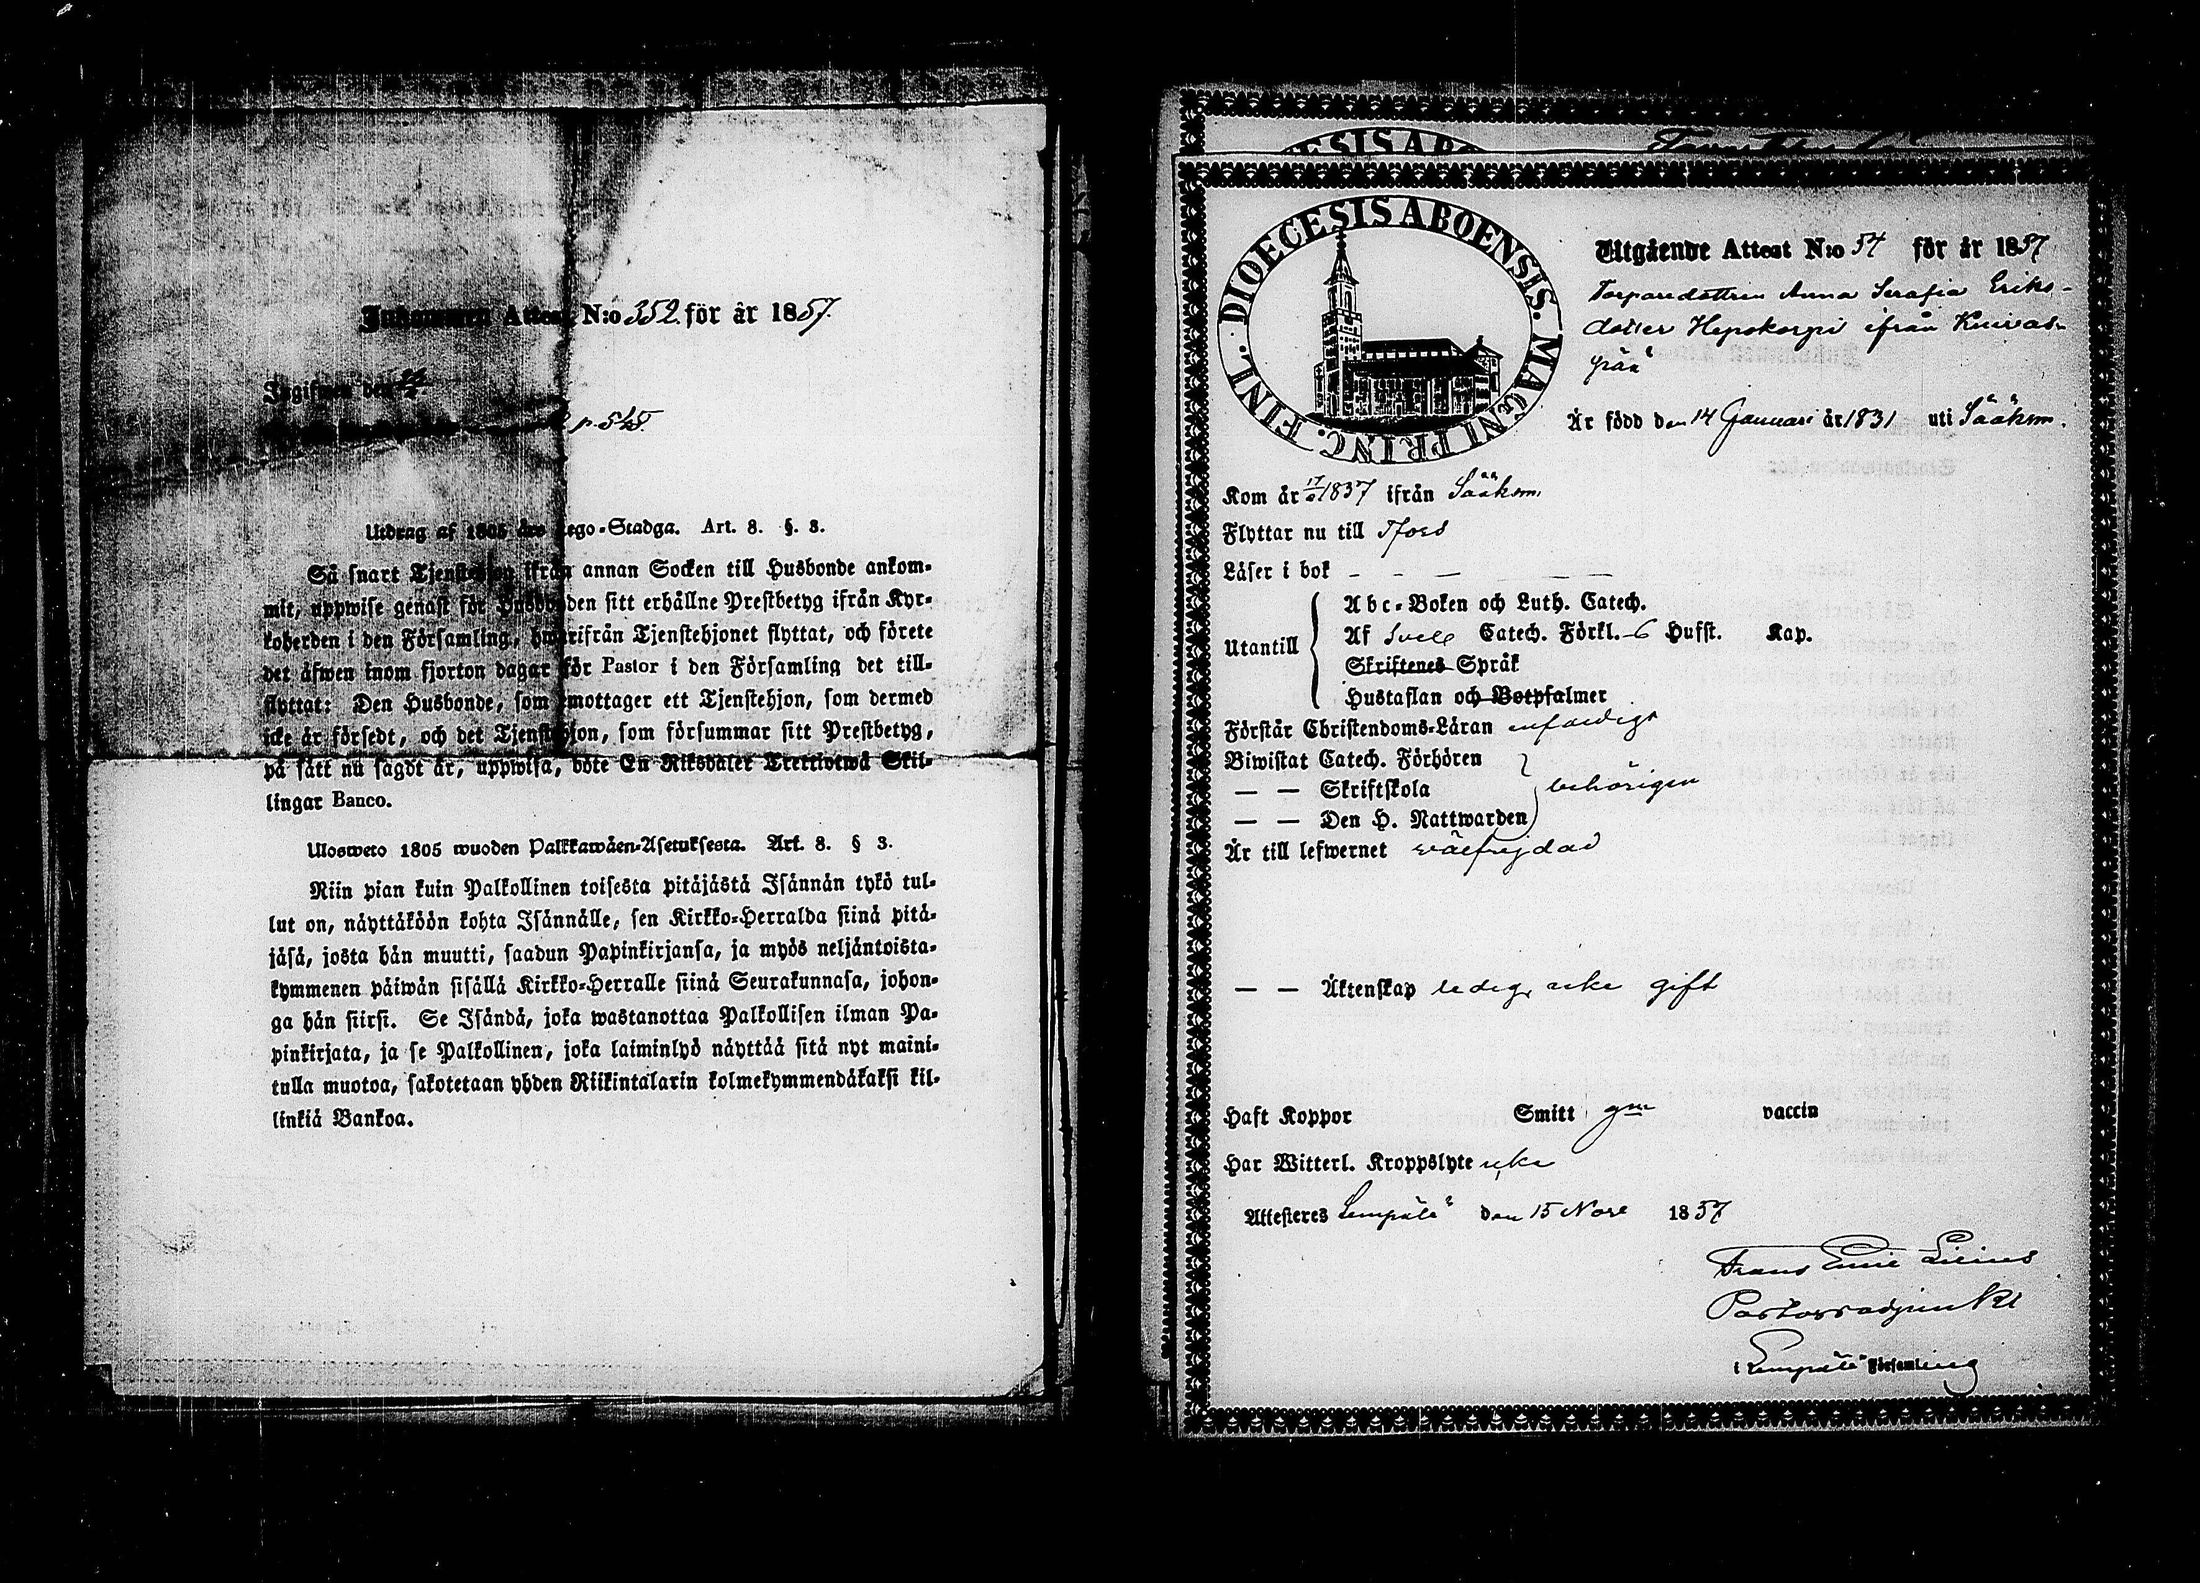 Inkommen Attest N:o 352 för år 1857.
Ingifwen den
p. 545.
Utdrag af 1805 års Lego-Stadga. Art. 8. §. 3.
Så snart Tjenstehjon ifrån annan Socken till Husbonde ankom-
mit, uppwise genast för Husbonden sitt erhållne Prestbetyg ifrån Kyr-
koherden i den Församling, hwarifrån Tjenstehjonet flyttat, och förete
det äfwen inom fjorton dagar för Pastor i den Församling det till-
flyttat: Den Husbonde, som emottager ett Tjenstehjon, som dermed
icke är försedt, och det Tjenstehjon, som försummar sitt Prestbetyg,
på sätt nu sagdt är, uppwisa, böte En Riksdaler Trettiotwå Skil-
lingar Banco.
Ulosweto 1805 wuoden Palkkawäen-Asetuksesta. Art. 8. § 3.
Niin pian kuin Palkollinen toisesta pitäjästä Isännän tykö tul-
lut on, näyttäköön kohta Isännälle, sen Kirkko-Herralda siinä pitä-
jäsä, josta hän muutti, saadun Papinkirjansa, ja myös neljäntoista-
kymmenen päiwän sisällä Kirkko-Herralle siinä Seurakunnasa, johon-
ga hän siirsi. Se Isändä, joka wastanottaa Palkollisen ilman Pa-
pinkirjata, ja se Palkollinen, joka laiminlyö näyttää sitä nyt maini-
tulla muotoa, sakotetaan yhden Riikintalarin kolmekymmendäkaksi kil-
linkiä Bankoa.
DIOECESIS ABOENSIS. MAGNI PRINC. FINL.
Utgående Attest N:o 54 för år 1857
Torparedottren Anna Serafia Eriks-
dotter Hepokorpi ifrån Kuivas-
pää
Är född den 14 Januari år 1831 uti Sääksm.
Kom år 1837 ifrån Sääksm.
Flyttar nu till Tfors
Läser i bok - - - - - -
Utantill
Abc-Boken och Luth. Catech.
Af Sveb Catech. Förkl. 6 Hufst. Kap.
Skriftenes Språk
Hustaflan och Botpsalmer
Förstår Christendoms-Läran enfaldigt
Biwistat Catech. Förhören
— — Skriftskola behörigen
— — Den H. Nattwarden
Är till lefwernet välfrejdad
— — Äktenskap ledig, icke gift
Haft Koppor Smitt gm vaccin
Har Witterl. Kroppslyte icke
Attesteres Lempälä den 15 Nove 1857
Frans Emil Lilius
Pastorsadjunkt
i Lempälä Församling